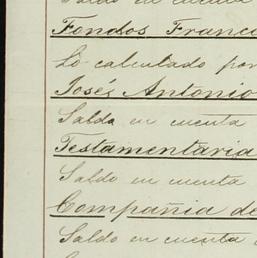 Saldo en cuenta
Fondos Franc
Lo calculado por
Josés Antonio
Saldo en cuenta
Testamentaria
Saldo en cuenta
Compañia de
Saldo en cuenta